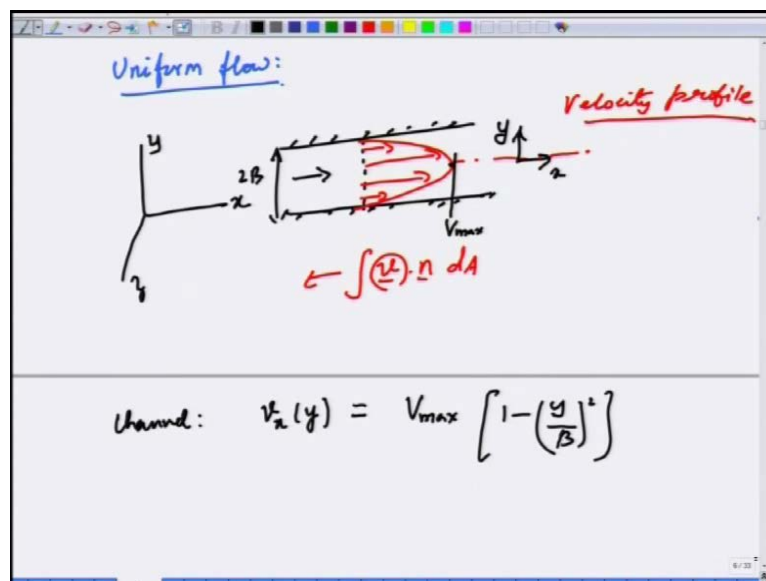 Uniform flow:
Velocity profile
y
x
z
2B
y
x
Vmax
← ∫(v)·n dA
Channel: vx(y) = Vmax [1-(y/B)²]
6/33